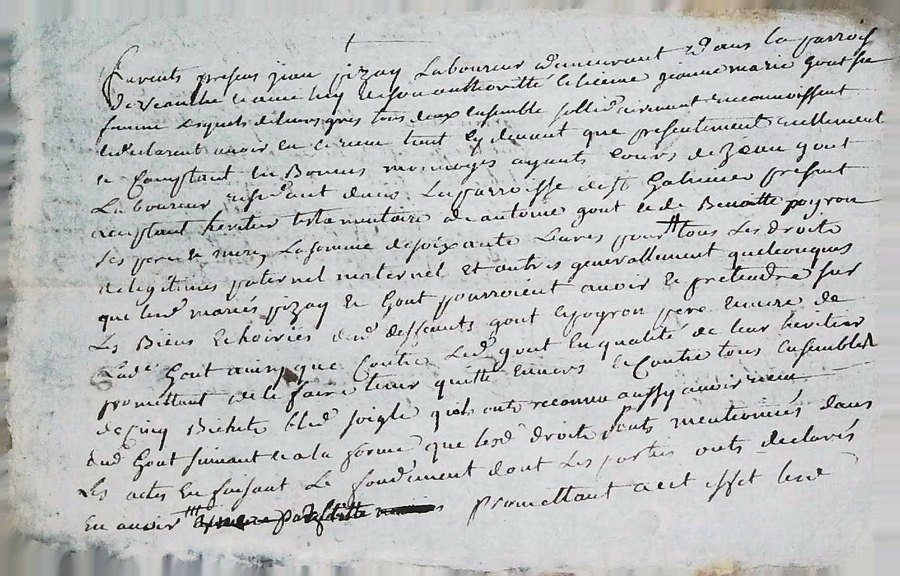 furent presens jean pizay Laboureur demeurant dans la parroisse
de et de son authoritté jeanne marie gout sa
femme Lesquels de leurs grés tous deux ensemble sollidairement reconnoissent
et declarent avoir eu et receu tant cy devant que presentement reellement
et Comptant En Bonnes monnoyes ayants cours de jean gout
Laboureur residant dans La parroisse de St Galmier present
acceptant heritier testamentaire de antoine gout et de Benoitte poyron
ses pere et mere La somme de soixante Livres pour tous Les droits
de legitimes paternel maternel et autres generallement quelconques
que Lesd mariés pizay et Gout pourroient avoir et pretendre sur
Les Biens et hoiries desd deffeunts gout et poyron pere et mere de
Lade Gout ainsy que Contre Led gout En qualité de leur heritier
promettant de le faire tenir quitte Envers et Contre tous Ensemble
de cinq Bichets bled soigle qu'ils ont reconnu aussy avoir receu
dud Gout suivant et a la forme que lesd droits sont mentionnés dans
Les actes En faisant Le fondement dont Les parties ont declarés
En avoir promettant a cet effet Lesd